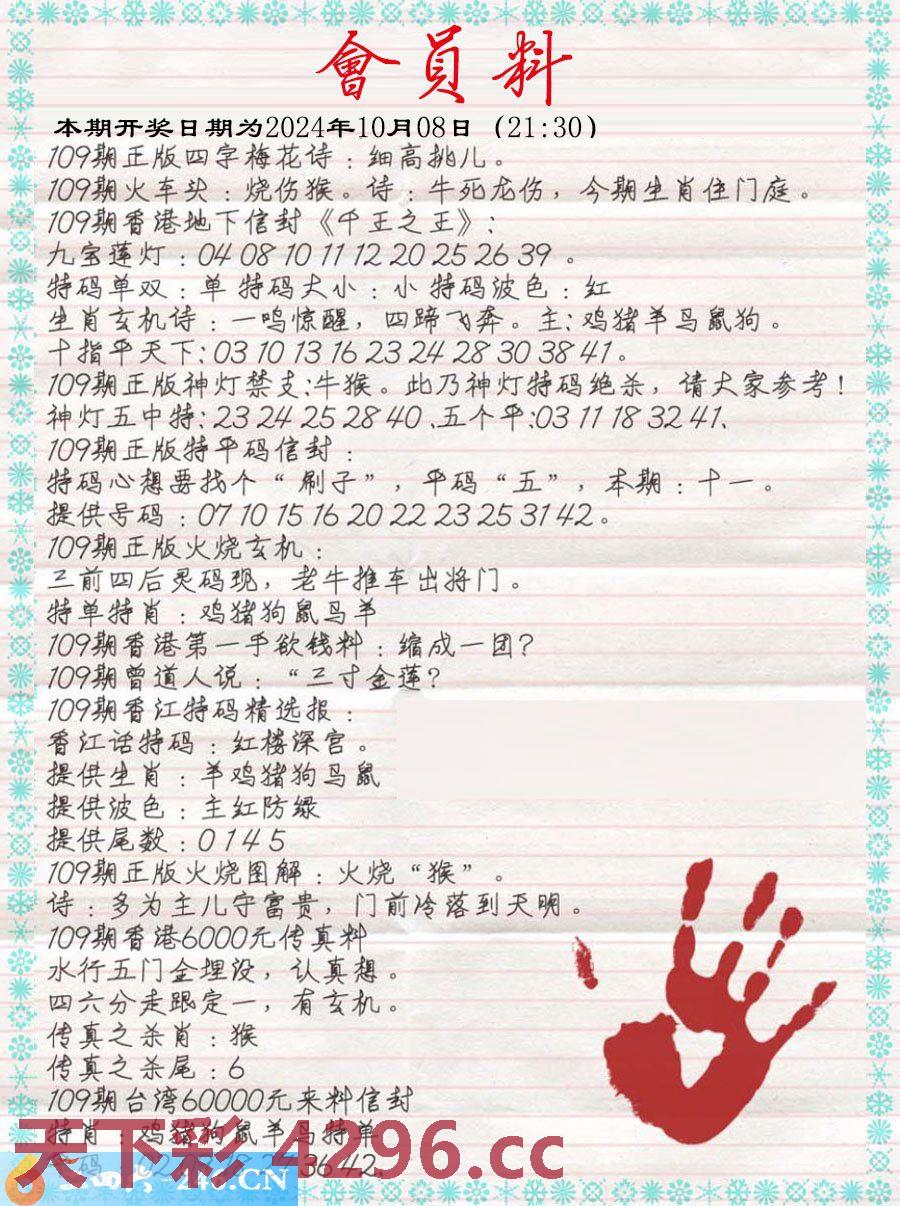 會員料
本期开奖日期为2024年10月08日（21:30）
109期正版四字梅花诗：细高挑儿。
109期火车头：烧伤猴。诗：牛死龙伤，今期生肖住门庭。
109期香港地下信封《千王之王》：
九宝莲灯：04 08 10 11 12 20 25 26 39 。
特码单双：单 特码大小：小 特码波色：红
生肖玄机诗：一鸣惊醒，四蹄飞奔。主：鸡猪羊马鼠狗。
十指平天下：03 10 13 16 23 24 28 30 38 41。
109期正版神灯禁支：牛猴。此乃神灯特码绝杀，请大家参考！
神灯五中特：23 24 25 28 40 、五个平：03 11 18 32 41、
109期正版特平码信封：
特码心想要找个“刷子”，平码“五”，本期：十一。
提供号码：07 10 15 16 20 22 23 25 31 42。
109期正版火烧玄机：
三前四后灵码现，老牛推车出将门。
特单特肖：鸡猪狗鼠马羊
109期香港第一手欲钱料：缩成一团？
109期曾道人说：“三寸金莲？
109期香江特码精选报：
香江话特码：红楼深宫。
提供生肖：羊鸡猪狗马鼠
提供波色：主红防绿
提供尾数：0 1 4 5
109期正版火烧图解：火烧“猴”。
诗：多为主儿守富贵，门前冷落到天明。
109期香港6000元传真料
水行五门金埋没，认真想。
四六分走跟定一，有玄机。
传真之杀肖：猴
传真之杀尾：6
109期台湾60000元来料信封
特肖：鸡猪狗鼠羊马特单
天下彩 4296.cc
36 42、
246.CN